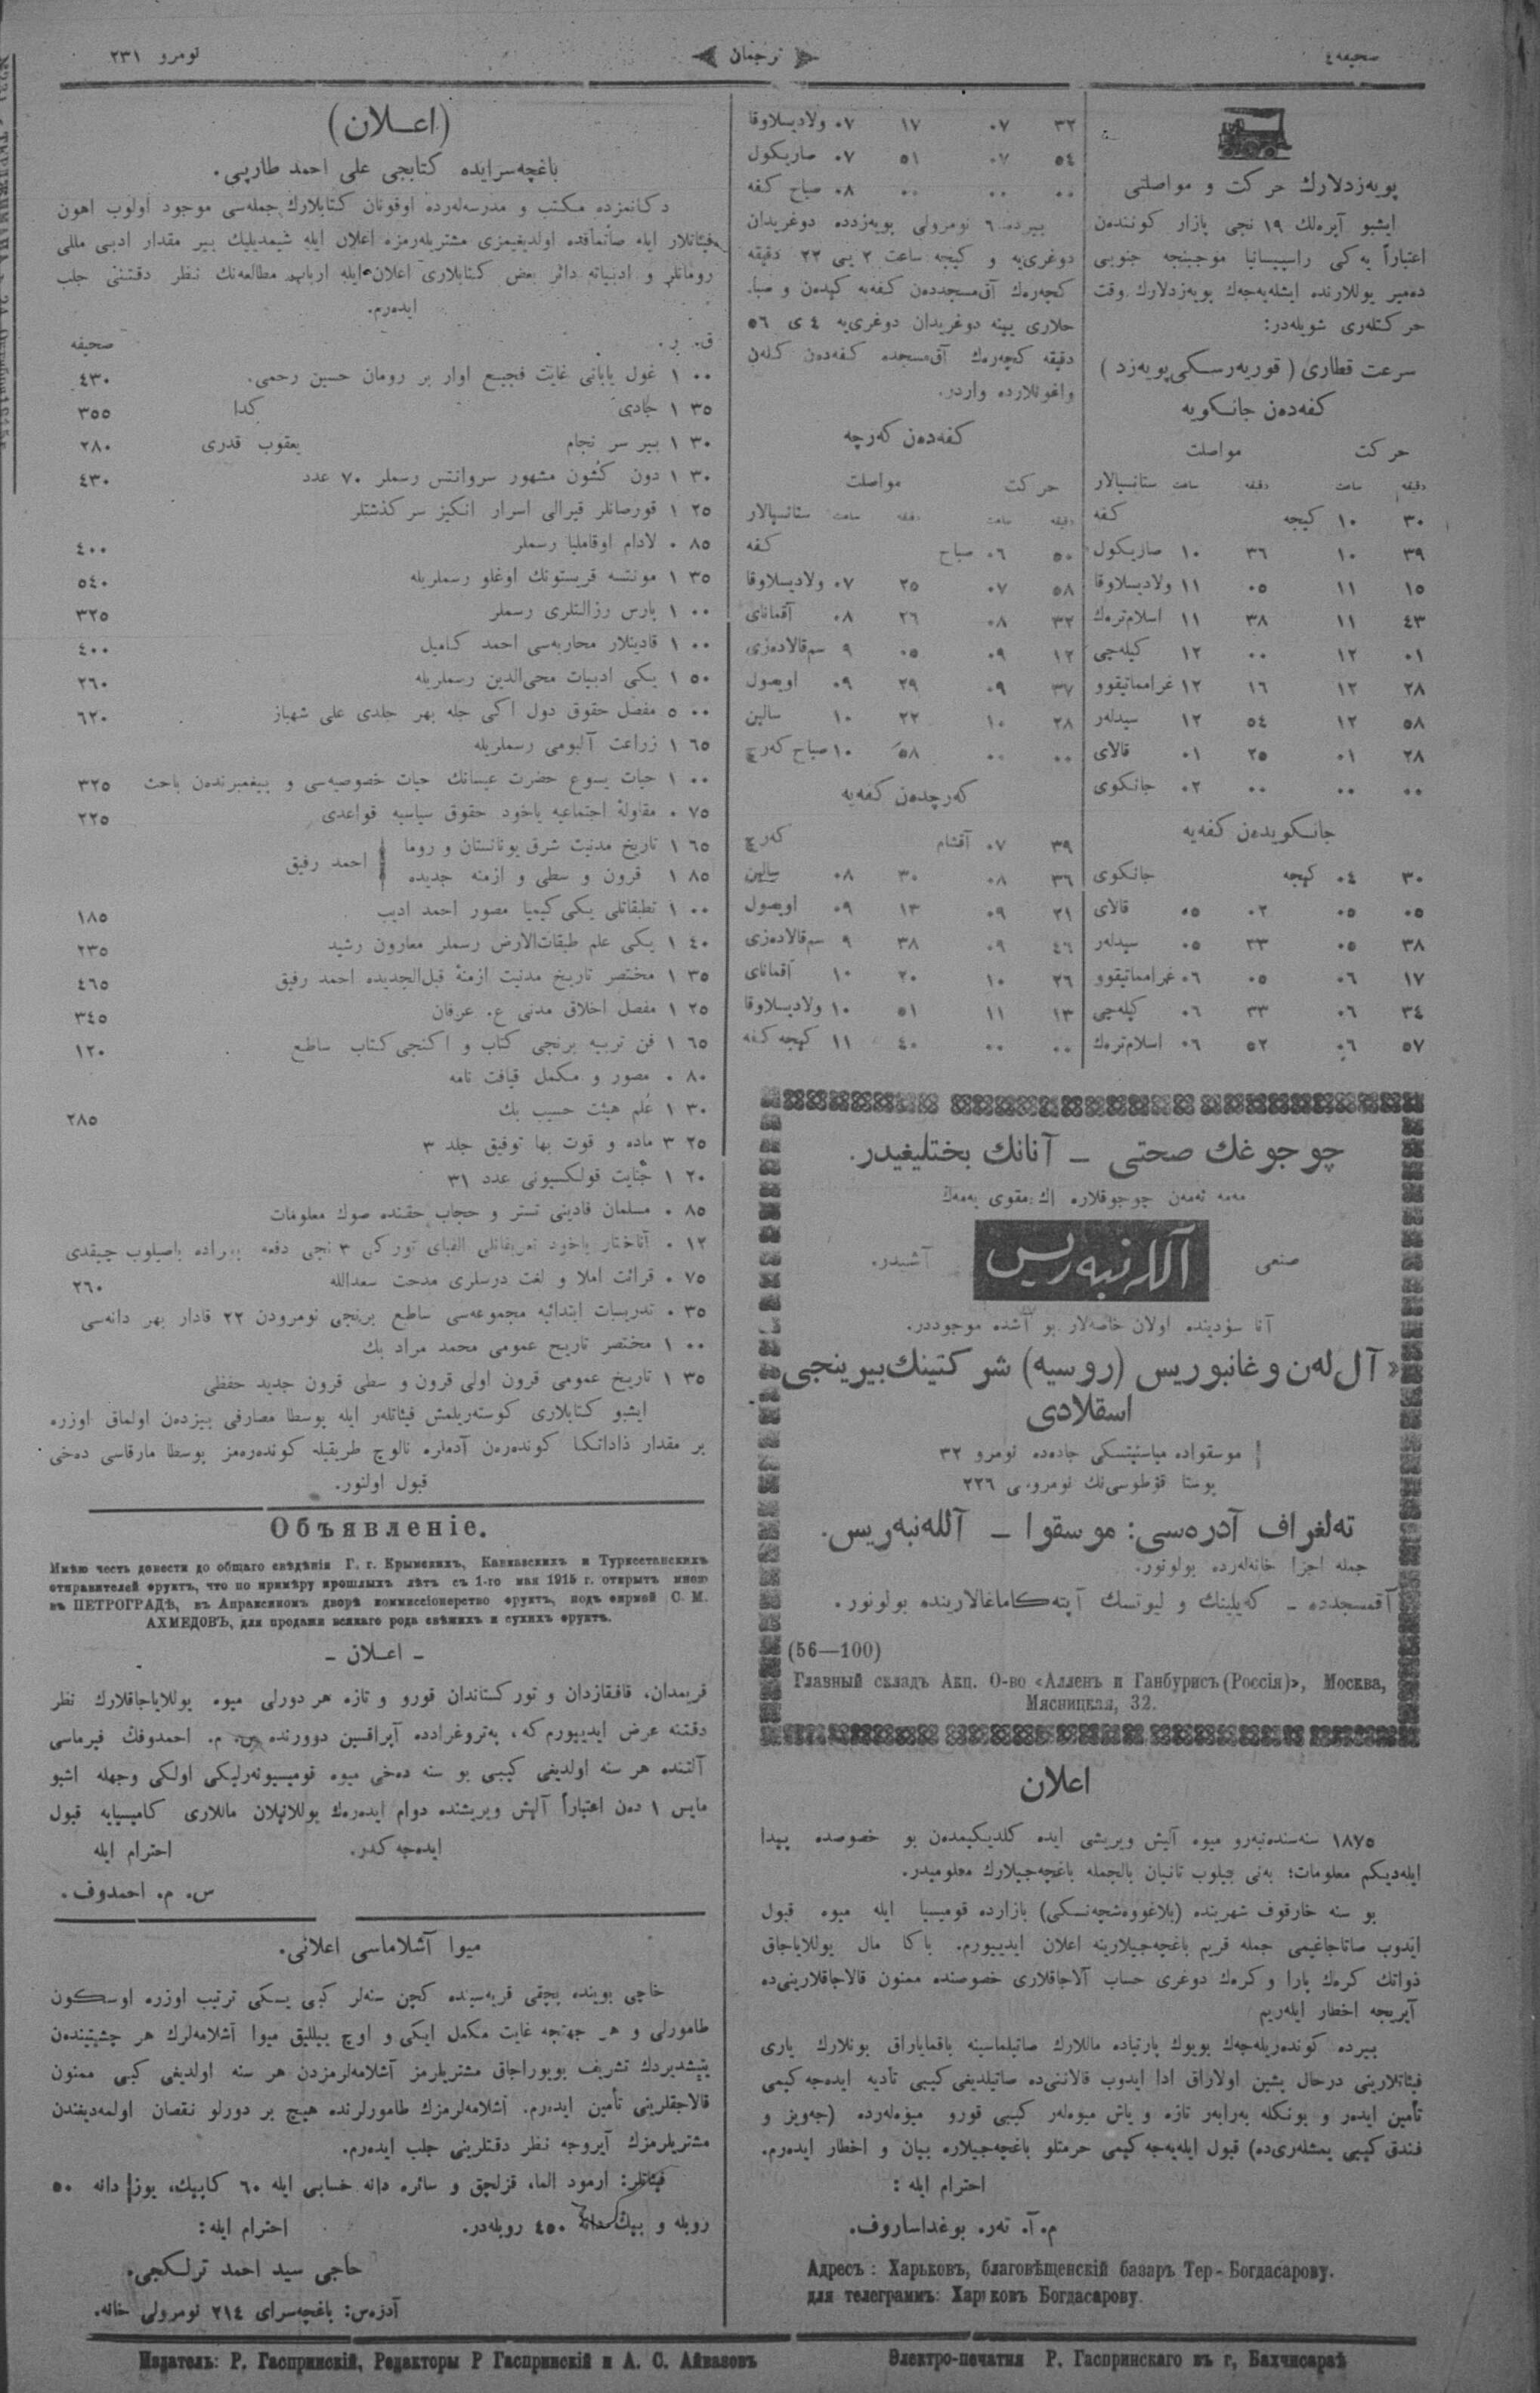 صحیفه ٤
ترجمان
نومرو ٢٣١
پویه‌زدلارك حرکت و مواصلتی
ایشبو آپره‌لك ١٩ نجی بازار کونندن
اعتباراً یه‌کی راسپیسانیا موجبنجه جنوبی
ده‌میر یوللارنده ایشله‌یه‌جه‌ك پویه‌زدلارك وقت
حرکتله‌ری شویله‌در:
سرعت قطاری ( قوریه‌رسکی پویه‌زد )
کفه‌دن جانکویه
حرکت مواصلت
دقیقه ساعت دقیقه ساعت ستانسیالار
٣٠ ١٠ کیجه کفه
٣٩ ١٠ ٣٦ ١٠ صاریکول
١٥ ١١ ٠٥ ١١ ولادیسلاوقا
٤٣ ١١ ٣٨ ١١ اسلام‌تره‌ك
٠١ ١٢ ٠٠ ١٢ کیله‌چی
٢٨ ١٢ ١٦ ١٢ غراماتیقوو
٥٨ ١٢ ٥٤ ١٢ سیدله‌ر
٢٨ ٠١ ٢٥ ٠١ قالای
٠٠ ٠٠ ٠٠ ٠٢ جانکوی
جانکویدن کفه‌یه
٣٠ ٠٤ کیجه جانکوی
٠٥ ٠٥ ٠٢ ٠٥ قالای
٣٨ ٠٥ ٣٣ ٠٥ سیدله‌ر
١٧ ٠٦ ٠٥ ٠٦ غراماتیقوو
٣٤ ٠٦ ٣٣ ٠٦ کیله‌چی
٥٧ ٠٦ ٥٢ ٠٦ اسلام‌تره‌ك
٣٢ ٠٧ ١٧ ٠٧ ولادیسلاوقا
٥٤ ٠٧ ٥١ ٠٧ صاریکول
٠٠ ٠٠ ٠٠ ٠٨ صباح کفه
بیرده ٦ نومرولی پویه‌زدده دوغریدان
دوغری‌یه و کیجه ساعت ٢ یی ٢٢ دقیقه
کچه‌رك آق‌مسجددن کفه‌یه کیدن و صبا
حلاری یینه دوغریدان دوغری‌یه ٤ ی ٥٦
دقیقه کچه‌رك آق‌مسجده کفه‌دن کلن
واغونلارده واردر.
کفه‌دن که‌رچه
حرکت مواصلت
دقیقه ساعت دقیقه ساعت ستانسیالار
٥٠ ٠٦ صباح کفه
٥٨ ٠٧ ٢٥ ٠٧ ولادیسلاوقا
٣٢ ٠٨ ٢٦ ٠٨ آقمانای
١٢ ٠٩ ٠٥ ٩ سم‌قالاده‌زی
٣٧ ٠٩ ٢٩ ٠٩ اویصول
٢٨ ١٠ ٢٢ ١٠ سالین
٠٠ ٠٠ ٥٨ ١٠ صباح که‌رچ
که‌رچدن کفه‌یه
٣٩ ٠٧ آقشام که‌رچ
٣٦ ٠٨ ٣٠ ٠٨ سالین
٢١ ٠٩ ١٣ ٠٩ اویصول
٤٦ ٠٩ ٣٨ ٩ سم‌قالاده‌زی
٢٦ ١٠ ٢٠ ١٠ آقمانای
١٣ ١١ ٥١ ١٠ ولادیسلاوقا
٠٠ ٠٠ ٤٠ ١١ کیجه کفه
چوجوغك صحتی – آنانك بختلیغیدر.
مه‌مه ئه‌مه‌ن چوجوقلاره اك مقوی یه‌مه‌ك
صنعی آلله‌نبه‌ریس آشیدر.
آنا سؤدینده اولان خاصه‌لار بو آشده موجوددر.
«آل‌له‌ن و غانبوریس (روسیه) شرکتینك بیرینجی
اسقلادی
موسقواده میاسنیتسکی جادەده نومرو ٣٢
پوستا قوطوسی‌نك نومروسی ٢٢٦
ته‌لغراف آدره‌سی: موسقوا – آلله‌نبه‌ریس.
جمله اجزا خانه‌له‌رده بولونور.
آقمسجدده – که‌یلینك و لیوتسك آپته‌کاماغالارینده بولونور.
(56—100)
Главный складъ Акц. О-во «Алленъ и Ганбурисъ (Россія)», Москва,
Мясницкая, 32.
اعلان
١٨٧٥ سنه‌سنده‌نبه‌رو میوه آلیش ویریشی ایده کلدیکیمدن بو خصوصده پیدا
ایله‌دیکم معلومات؛ به‌نی بیلوب تانیان بالجمله باغچه‌جیلارك معلومیدر.
بو سنه خارقوف شهرینده (بلاغووه‌شچه‌نسکی) بازارده قومیسیا ایله میوه قبول
ایدوب صاتاجاغیمی جمله قریم باغچه‌جیلارینه اعلان ایدییورم. باکا مال یوللایاجاق
ذواتك کرەك پارا و کرەك دوغری حساب آلاجاقلاری خصوصنده ممنون قالاجاقلارینی‌ده
آیریجه اخطار ایله‌ریم
بیرده کونده‌ریله‌جه‌ك بویوك پارتیاده ماللارك صاتیلماسینه باقمایاراق بونلارك یاری
فیئاتلارینی درحال پشین اولاراق ادا ایدوب قالاننی‌ده صاتیلدیغی کیبی تأدیه ایده‌جه‌کیمی
تأمین ایدەر و بونکله به‌رابه‌ر تازه و یاش میوه‌له‌ر کیبی قورو میوه‌له‌رده (جه‌ویز و
فندق کیبی یمشله‌ری‌ده) قبول ایله‌یه‌جه‌کیمی حرمتلو باغچه‌جیلاره بیان و اخطار ایدەرم.
احترام ایله :
م. آ. ته‌ر. بوغداساروف.
Адресъ: Харьковъ, благовѣщенскій базаръ Тер-Богдасарову.
для телеграммъ: Харьковъ Богдасарову.
(اعــلان)
باغچه‌سرایده کتابجی علی احمد طارپی.
دکانمزده مکتب و مدرسه‌له‌رده اوقونان کتابلارك جمله‌سی موجود اولوب اهون
فیئاتلار ایله صاتماقده اولدیغیمزی مشتریله‌رمزه اعلان ایله شیمدیلیك بیر مقدار ادبی مللی
رومانلر و ادبیاته دائر بعض کتابلاری اعلان ایله ارباب مطالعه‌نك نظر دقتنی جلب
ایده‌رم.
ق. ر. صحیفه
٠٠ ١ غول یابانی غایت فجیع اوار بر رومان حسین رحمی. ٤٣٠
٣٥ ١ جادی کذا ٣٥٥
٣٠ ١ بیر سر نجام یعقوب قدری ٢٨٠
٣٠ ١ دون کشون مشهور سروانتس رسملر ٧٠ عدد ٤٣٠
٢٥ ١ قورصانلر قیرالی اسرار انکیز سرکذشتلر
٨٥ ٠ لادام اوقاملیا رسملر ٤٠٠
٣٥ ١ مونتسه قریستونك اوغلو رسملریله ٥٤٠
٠٠ ١ پارس رزالتلری رسملر ٣٢٥
٠٠ ١ قادینلار محاربه‌سی احمد کامیل ٤٠٠
٥٠ ١ یکی ادبیات محی‌الدین رسملریله ٢٦٠
٠٠ ٥ مفصل حقوق دول اکی جله بهر جلدی علی شهباز ٦٢٠
٦٥ ١ زراعت آلبومی رسملریله
٠٠ ١ حیات یسوع حضرت عیسانك حیات خصوصیه‌سی و پیغمبرندن باحث ٣٢٥
٧٥ ٠ مقاولهٔ اجتماعیه یاخود حقوق سیاسیه قواعدی ٢٢٥
٦٥ ١ تاریخ مدنیت شرق یونانستان و روما
٨٥ ١ قرون وسطی و ازمنه جدیده احمد رفیق
٠٠ ١ تطبقاتلی یکی کیمیا مصور احمد ادیب ١٨٥
٤٠ ١ یکی علم طبقات‌الارض رسملر معارون رشید ٢٣٥
٣٥ ١ مختصر تاریخ مدنیت ازمنهٔ قبل‌الجدیده احمد رفیق ٤٦٥
٢٥ ١ مفصل اخلاق مدنی ع. عرفان ٣٤٥
٦٥ ١ فن تربیه برنجی کتاب و اکنجی کتاب ساطع ١٢٠
٨٠ ٠ مصور و مکمل قیافت نامه
٣٠ ١ علم هیئت حسیب بك ٢٨٥
٢٥ ٣ ماده و قوت بها توفیق جلد ٣
٢٠ ١ جنایت قولکسیونی عدد ٣١
٨٥ ٠ مسلمان قادینی تستر و حجاب حقنده صوك معلومات
١٢ ٠ آناختار یاخود تعریفاتلی الفبای تورکی ٣ نجی دفعه باصیلوب چیقدی
٧٥ ٠ قرائت املا و لغت درسلری مدحت سعدالله ٢٦٠
٣٥ ٠ تدریسات ابتدائیه مجموعه‌سی ساطع برنجی نومرودن ٢٢ قادار بهر دانه‌سی
٠٠ ١ مختصر تاریخ عمومی محمد مراد بك
٣٥ ١ تاریخ عمومی قرون اولی قرون وسطی قرون جدید حفظی
ایشبو کتابلاری کوسته‌ریلمش فیئاتلەر ایله پوسطا مصارفی بیزدن اولماق اوزره
بر مقدار ذاداتکا کونده‌رەن آدملره نالوج طریقیله کونده‌ره‌مز پوسطا مارقاسی دەخی
قبول اولنور.
Объявленіе.
Имѣю честь довести до общаго свѣдѣнія Г. г. Крымскихъ, Кавказскихъ и Туркестанскихъ
отправителей фруктъ, что по примѣру прошлыхъ лѣтъ съ 1-го мая 1915 г. открытъ мною
въ ПЕТРОГРАДѢ, въ Апраксиномъ дворѣ коммиссіонерство фруктъ, подъ фирмой С. М.
АХМЕДОВЪ, для продажи всякаго рода свѣжихъ и сухихъ фруктъ.
– اعــلان –
قریمدان، قافقازدان و تورکستاندان قورو و تازه هر دورلی میوه یوللایاجاقلارك نظر
دقتنه عرض ایدییورم که، په‌تروغرادده آپراقسین دوورنده س. م. احمدوفك فیرماسی
آلتنده هر سنه اولدیغی کیبی بو سنه دەخی میوه قومیسیونه‌رلیکی اولکی وجهله اشبو
مایس ١ دن اعتباراً آلیش ویریشنده دوام ایدەرەك یوللانیلان ماللاری کامیسیایه قبول
ایده‌جه‌کدر. احترام ایله
س. م. احمدوف.
میوا آشلاماسی اعلانی.
خاچی بوینده بچقی قریه‌سیده کچن سنه‌لر کبی یسکی ترتیب اوزره اوسکون
طامورلی و هر جهتجه غایت مکمل ایکی و اوچ ییللیق میوا آشلامه‌لرك هر چشیتیندن
یتیشدیردك تشریف بویوراجاق مشتریلرمز آشلامه‌لرمزدن هر سنه اولدیغی کبی ممنون
قالاجقلرینی تأمین ایدەرم. آشلامه‌لرمزك طامورلرنده هیچ بر دورلو نقصان اولمه‌دیغندن
مشتریلرمزك آیروجه نظر دقتلرینی جلب ایدەرم.
فیئاتلر: ارمود الما، قزلچق و سائره دانه حسابی ایله ٦٠ کاپیك، یوز دانه ٥٠
روبله و بیك دانه ٤٥٠ روبله‌در. احترام ایله:
حاجی سید احمد ترلکجی.
آدره‌س: باغچه‌سرای ٢١٤ نومرولی خانه.
Издатель: Р. Гаспринскій, Редакторы Р Гаспринскій и А. С. Айвазовъ
Электро-печатня Р. Гаспринскаго въ г. Бахчисараѣ